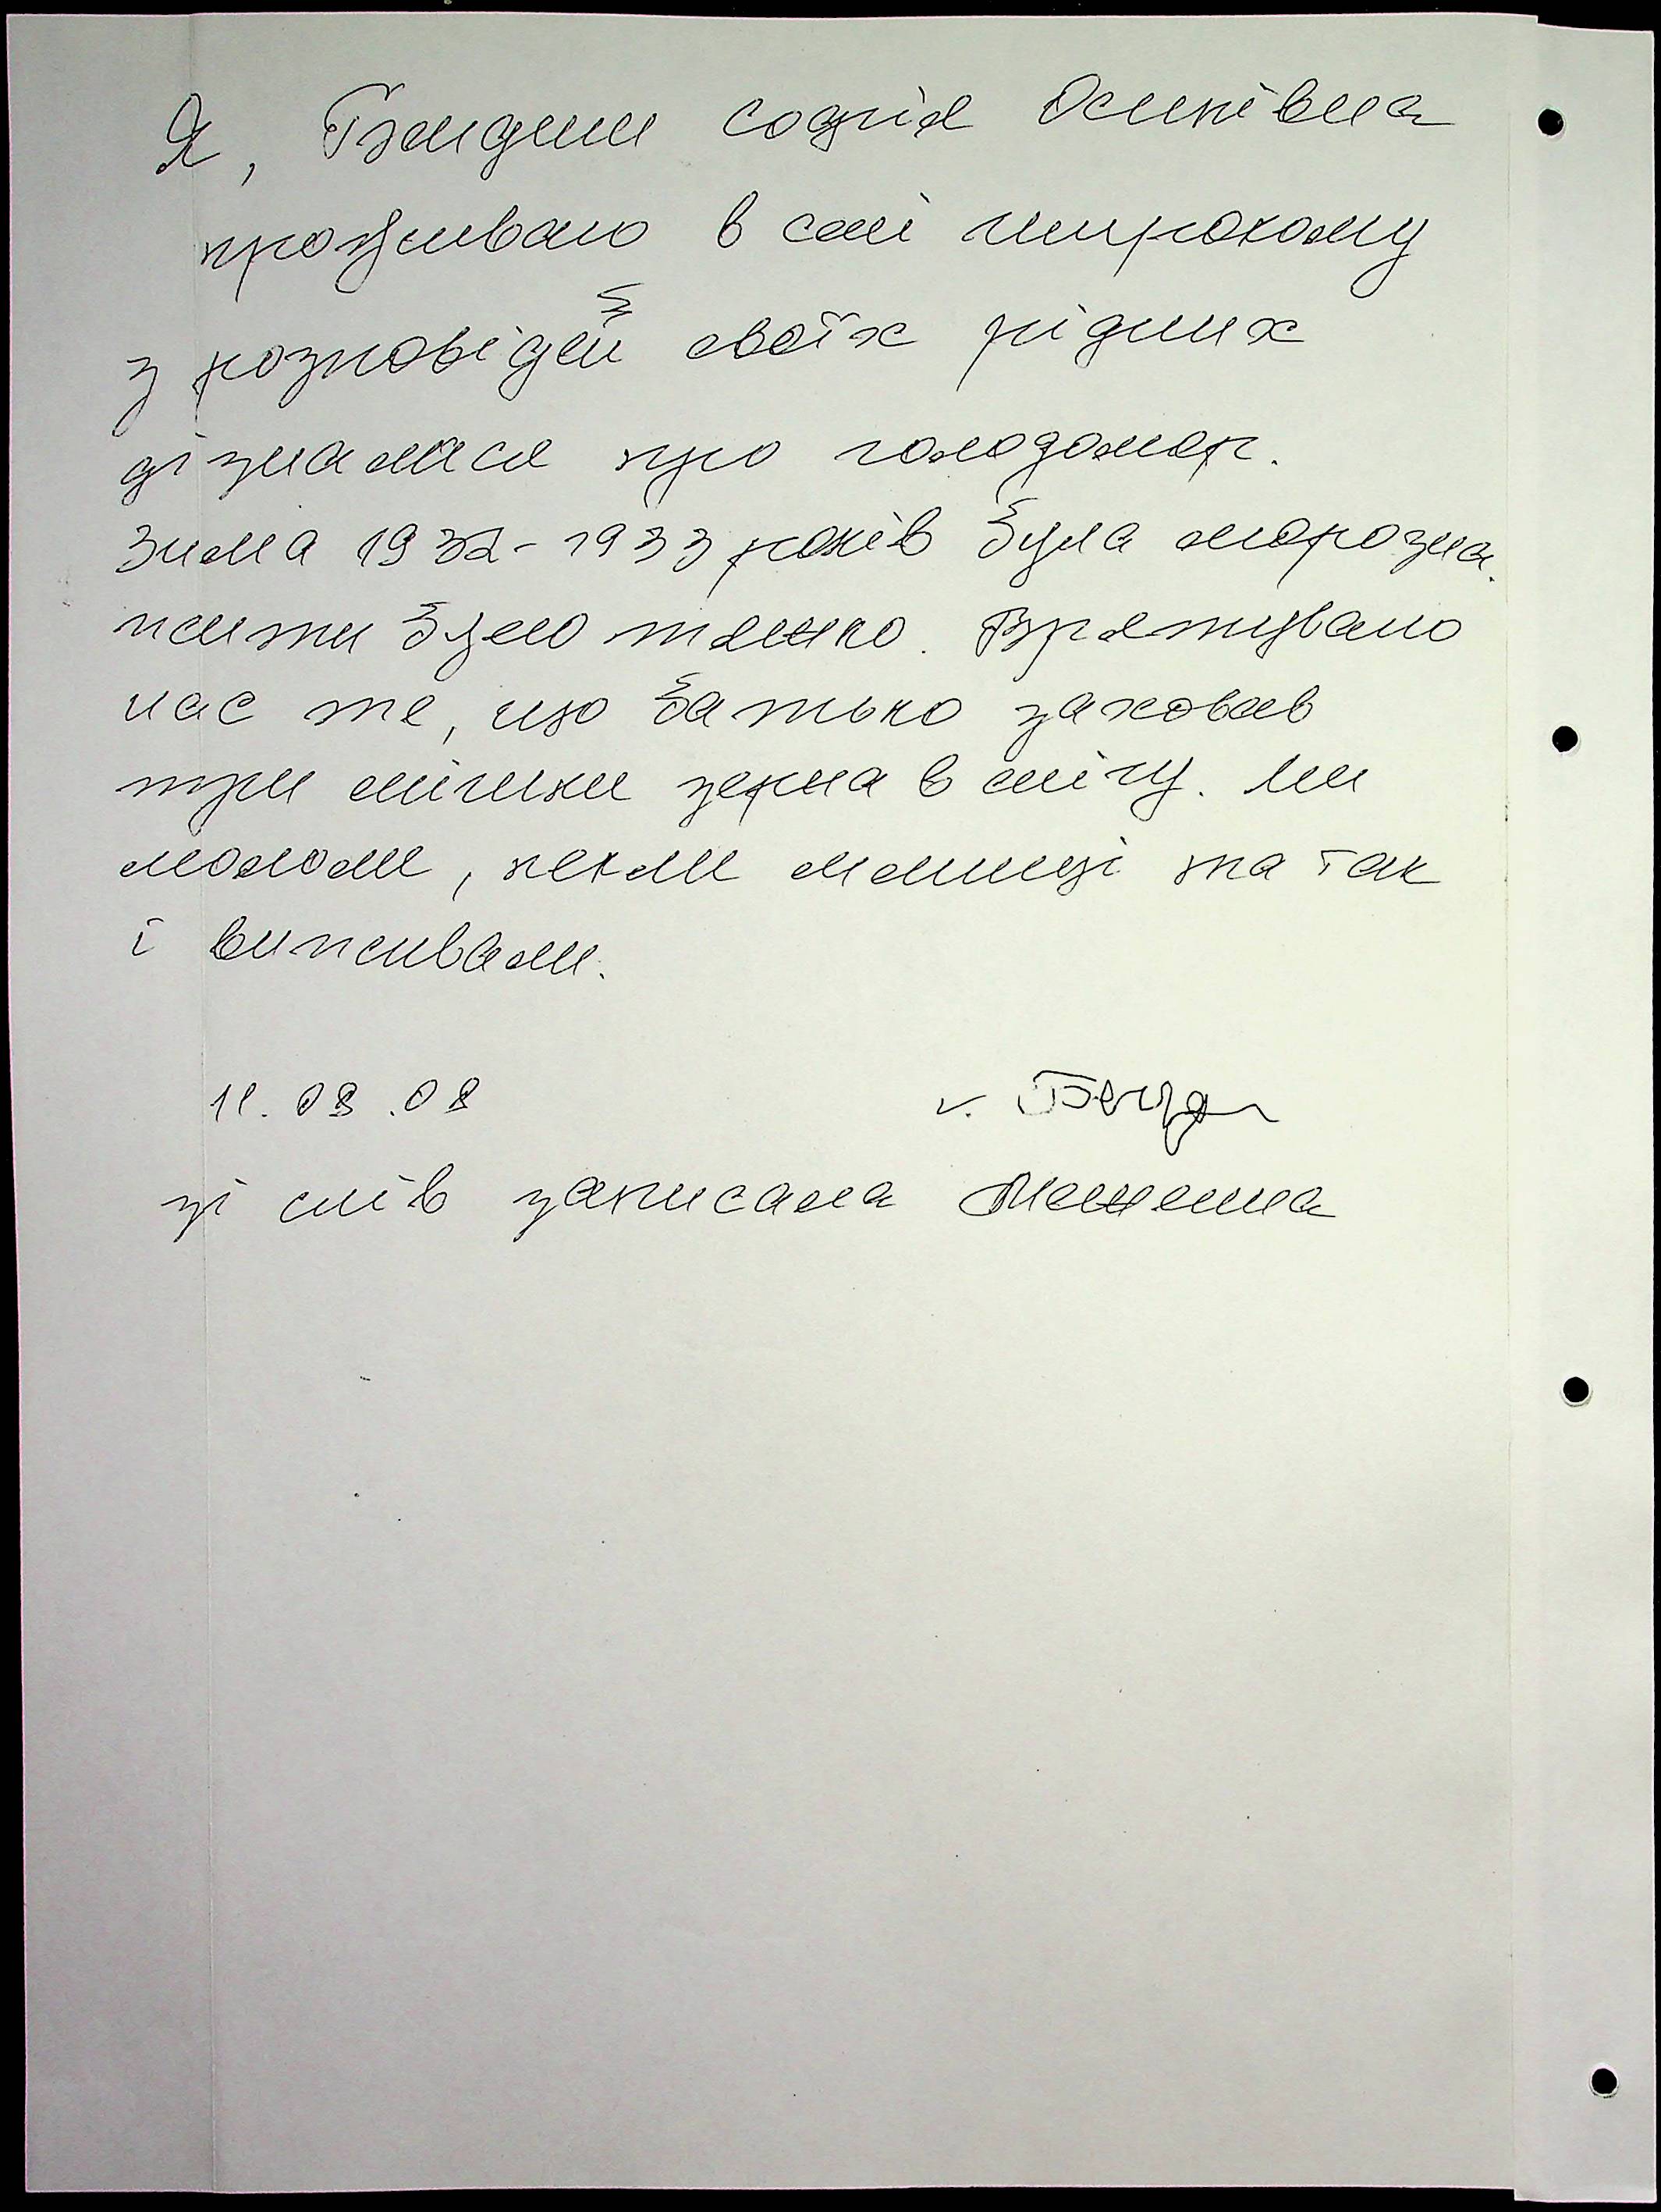 Я, Бендич Софія Осипівна
проживаю в селі широкому
з розповідей своїх рідних
дізналася про голодомор.
Зима 1932-1933 років була морозна.
жити було тяжко. Врятувало
нас те, що батько заховав
три мішки зерна в снігу. Ми
мололи, пекли млинці та так
і виживали.
11.08.08
зі слів записала